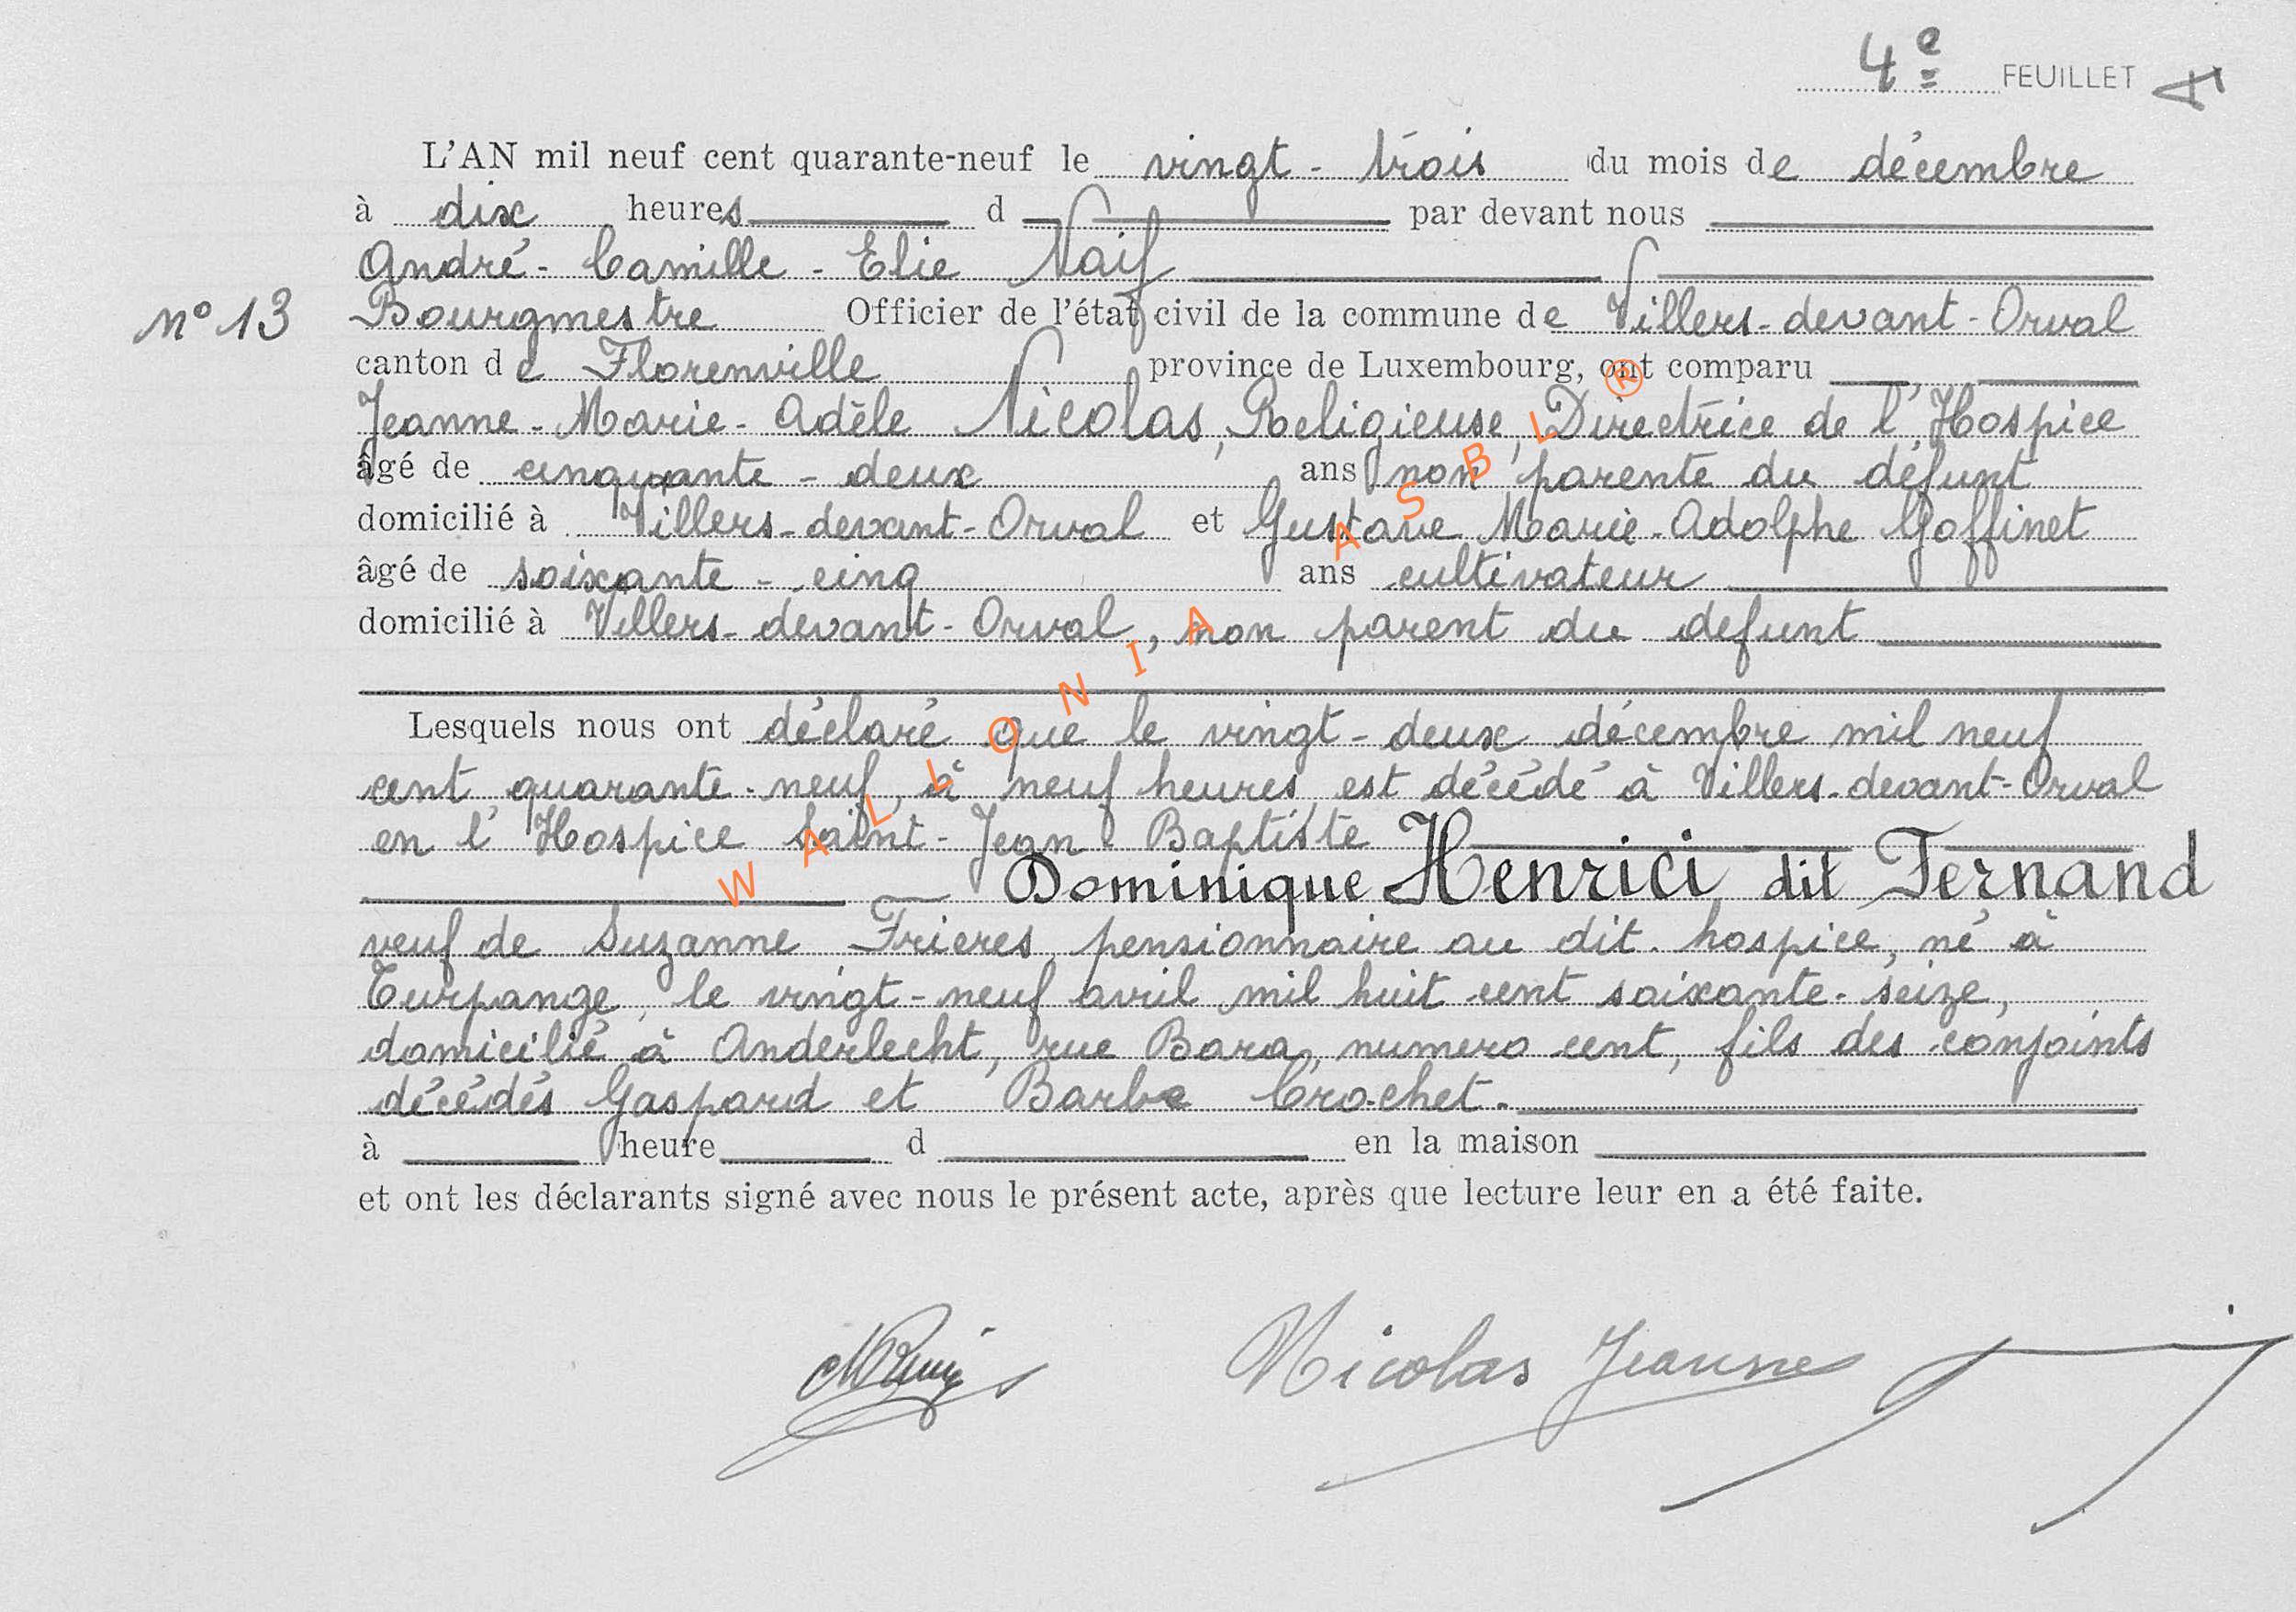 4e FEUILLET
L'AN mil neuf cent quarante-neuf le vingt-trois du mois de décembre
à dix heures d par devant nous
André-Camille-Elie Naif
n° 13 Bourgmestre Officier de l'état civil de la commune de Villers-devant-Orval
canton de Florenville province de Luxembourg, ont comparu
Jeanne-Marie-Adèle Nicolas, Religieuse, Directrice de l'Hospice
âgé de cinquante-deux ans non parente du défunt
domicilié à Villers-devant-Orval et Gustave Marie-Adolphe Goffinet
âgé de soixante-cinq ans cultivateur
domicilié à Villers-devant-Orval, non parent du defunt
Lesquels nous ont déclaré que le vingt-deux décembre mil neuf
cent quarante-neuf, à neuf heures, est décédé à Villers-devant-Orval
en l'Hospice Saint-Jean Baptiste
Dominique Henrici dit Fernand
veuf de Suzanne Frieres, pensionnaire au dit hospice, né à
Turpange, le vingt-neuf avril mil huit cent soixante-seize,
domicilié à Anderlecht, rue Bara, numero cent, fils des conjoints
décédés Gaspard et Barbe Crochet.
à heure d en la maison
et ont les déclarants signé avec nous le présent acte, après que lecture leur en a été faite.
Nicolas Jeanne
WALLONIA ASBL ®